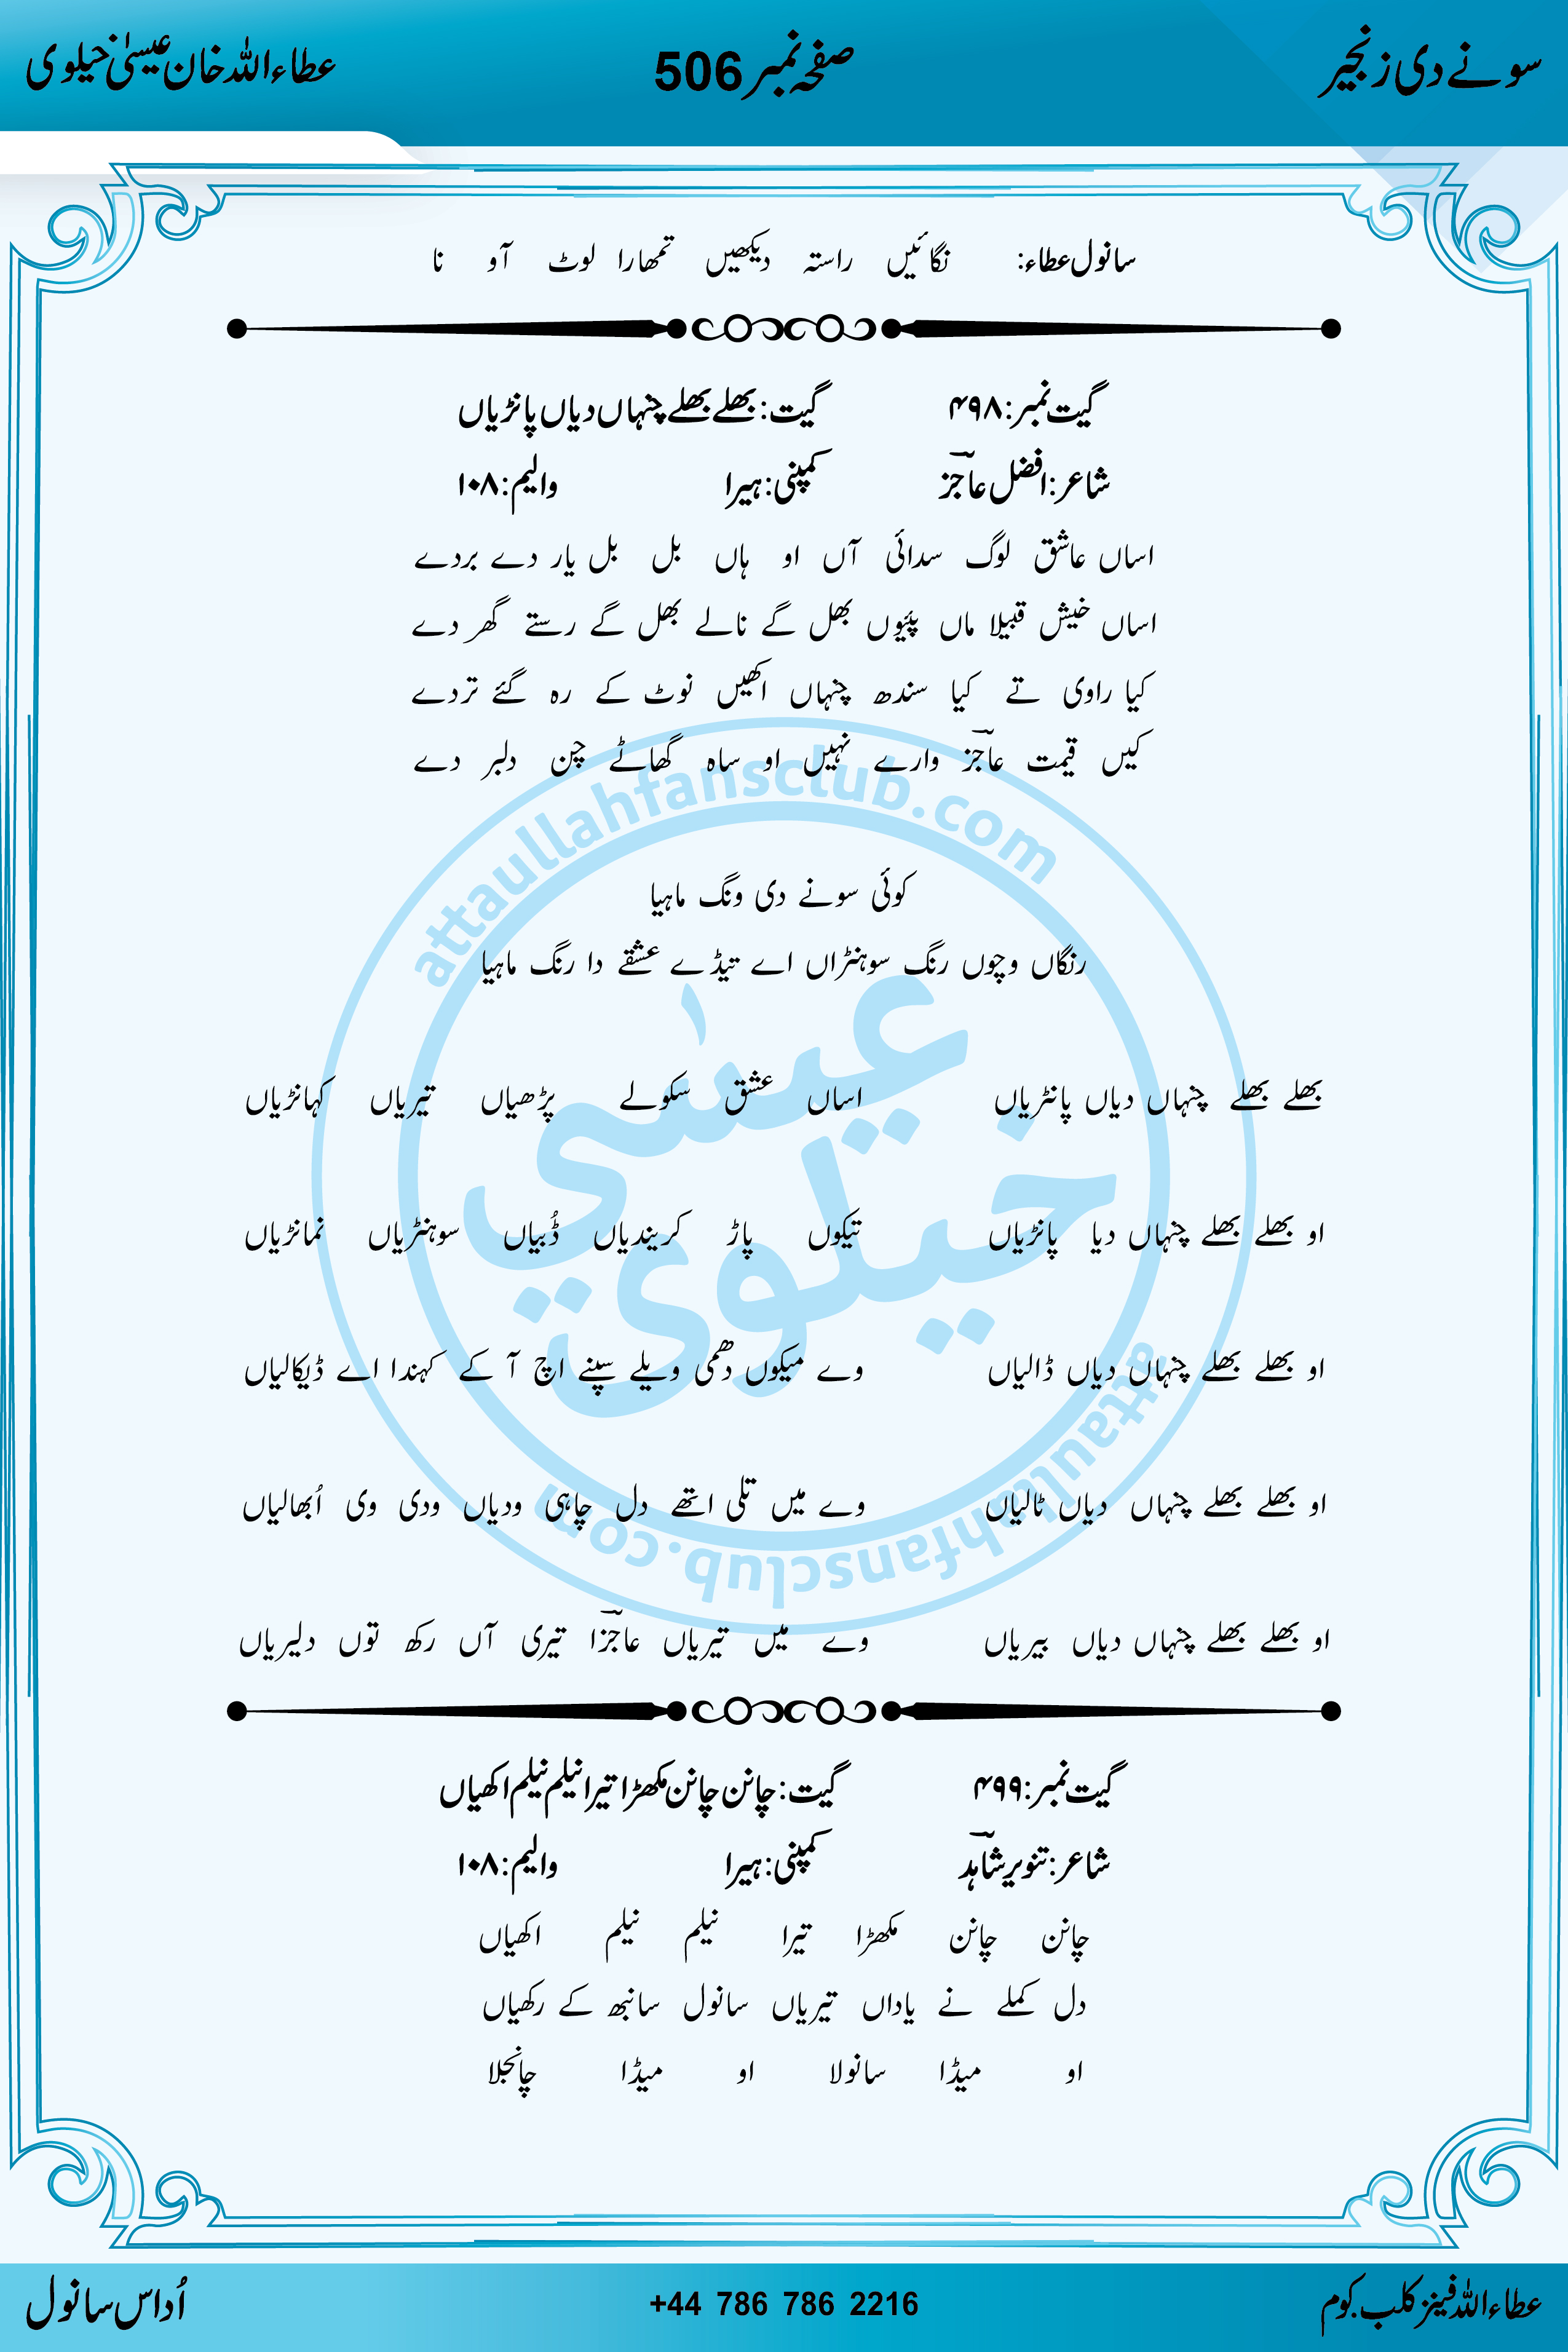 سونے دی زنجیر
صفحہ نمبر 506
عطاءاللہ خان عیسیٰ خیلوی
سانول عطاء: نگائیں راستہ دیکھیں تمھارا لوٹ آو نا
گیت نمبر: ۴۹۸ گیت: بھلے بھلے چنہاں دیاں پانڑیاں
شاعر: افضل عاجزؔ کمپنی: ہیرا والیم: ۱۰۸
اساں عاشق لوگ سدائی آں او ہاں بل بل یار دے بردے
اساں خیش قبیلا ماں پئیوں بھل گے نالے بھل گے رستے گھر دے
کیا راوی تے کیا سندھ چنہاں اکھیں نوٹ کے رہ گئے تردے
کیں قیمت عاجزؔ وارے نہیں او ساہ گھاٹے چن دلبر دے
کوئی سونے دی ونگ ماہیا
رنگاں وچوں رنگ سوہنڑاں اے تیڈے عشقے دا رنگ ماہیا
بھلے بھلے چنہاں دیاں پانٹریاں اساں عشق سکولے پڑھیاں تیریاں کہانڑیاں
او بھلے بھلے چنہاں دیا پانڑیاں تیکوں پاڑ کریندیاں ڈُبیاں سوہنٹریاں نمانڑیاں
او بھلے بھلے چنہاں دیاں ڈالیاں وے میکوں دھمی ویلے سپنے اچ آ کے کہندا اے ڈیکالیاں
او بھلے بھلے چنہاں دیاں ٹالیاں وے میں تلی اتھے دل چاہی ودیاں ودی وی اُبھالیاں
او بھلے بھلے چنہاں دیاں بیریاں وے میں تیریاں عاجزؔا تیری آں رکھ توں دلیریاں
گیت نمبر: ۴۹۹ گیت: چانن چانن مکھڑا تیرا نیلم نیلم اکھیاں
شاعر: تنویر شاہدؔ کمپنی: ہیرا والیم: ۱۰۸
چانن چانن مکھڑا تیرا نیلم نیلم اکھیاں
دل کملے نے یاداں تیریاں سانول سانبھ کے رکھیاں
او میڈا سانولا او میڈا چانجلا
attaullahfansclub.com
عیسیٰ خیلوی
attaullahfansclub.com
عطاءاللہ فینز کلب.کوم
+44 786 786 2216
اُداس سانول